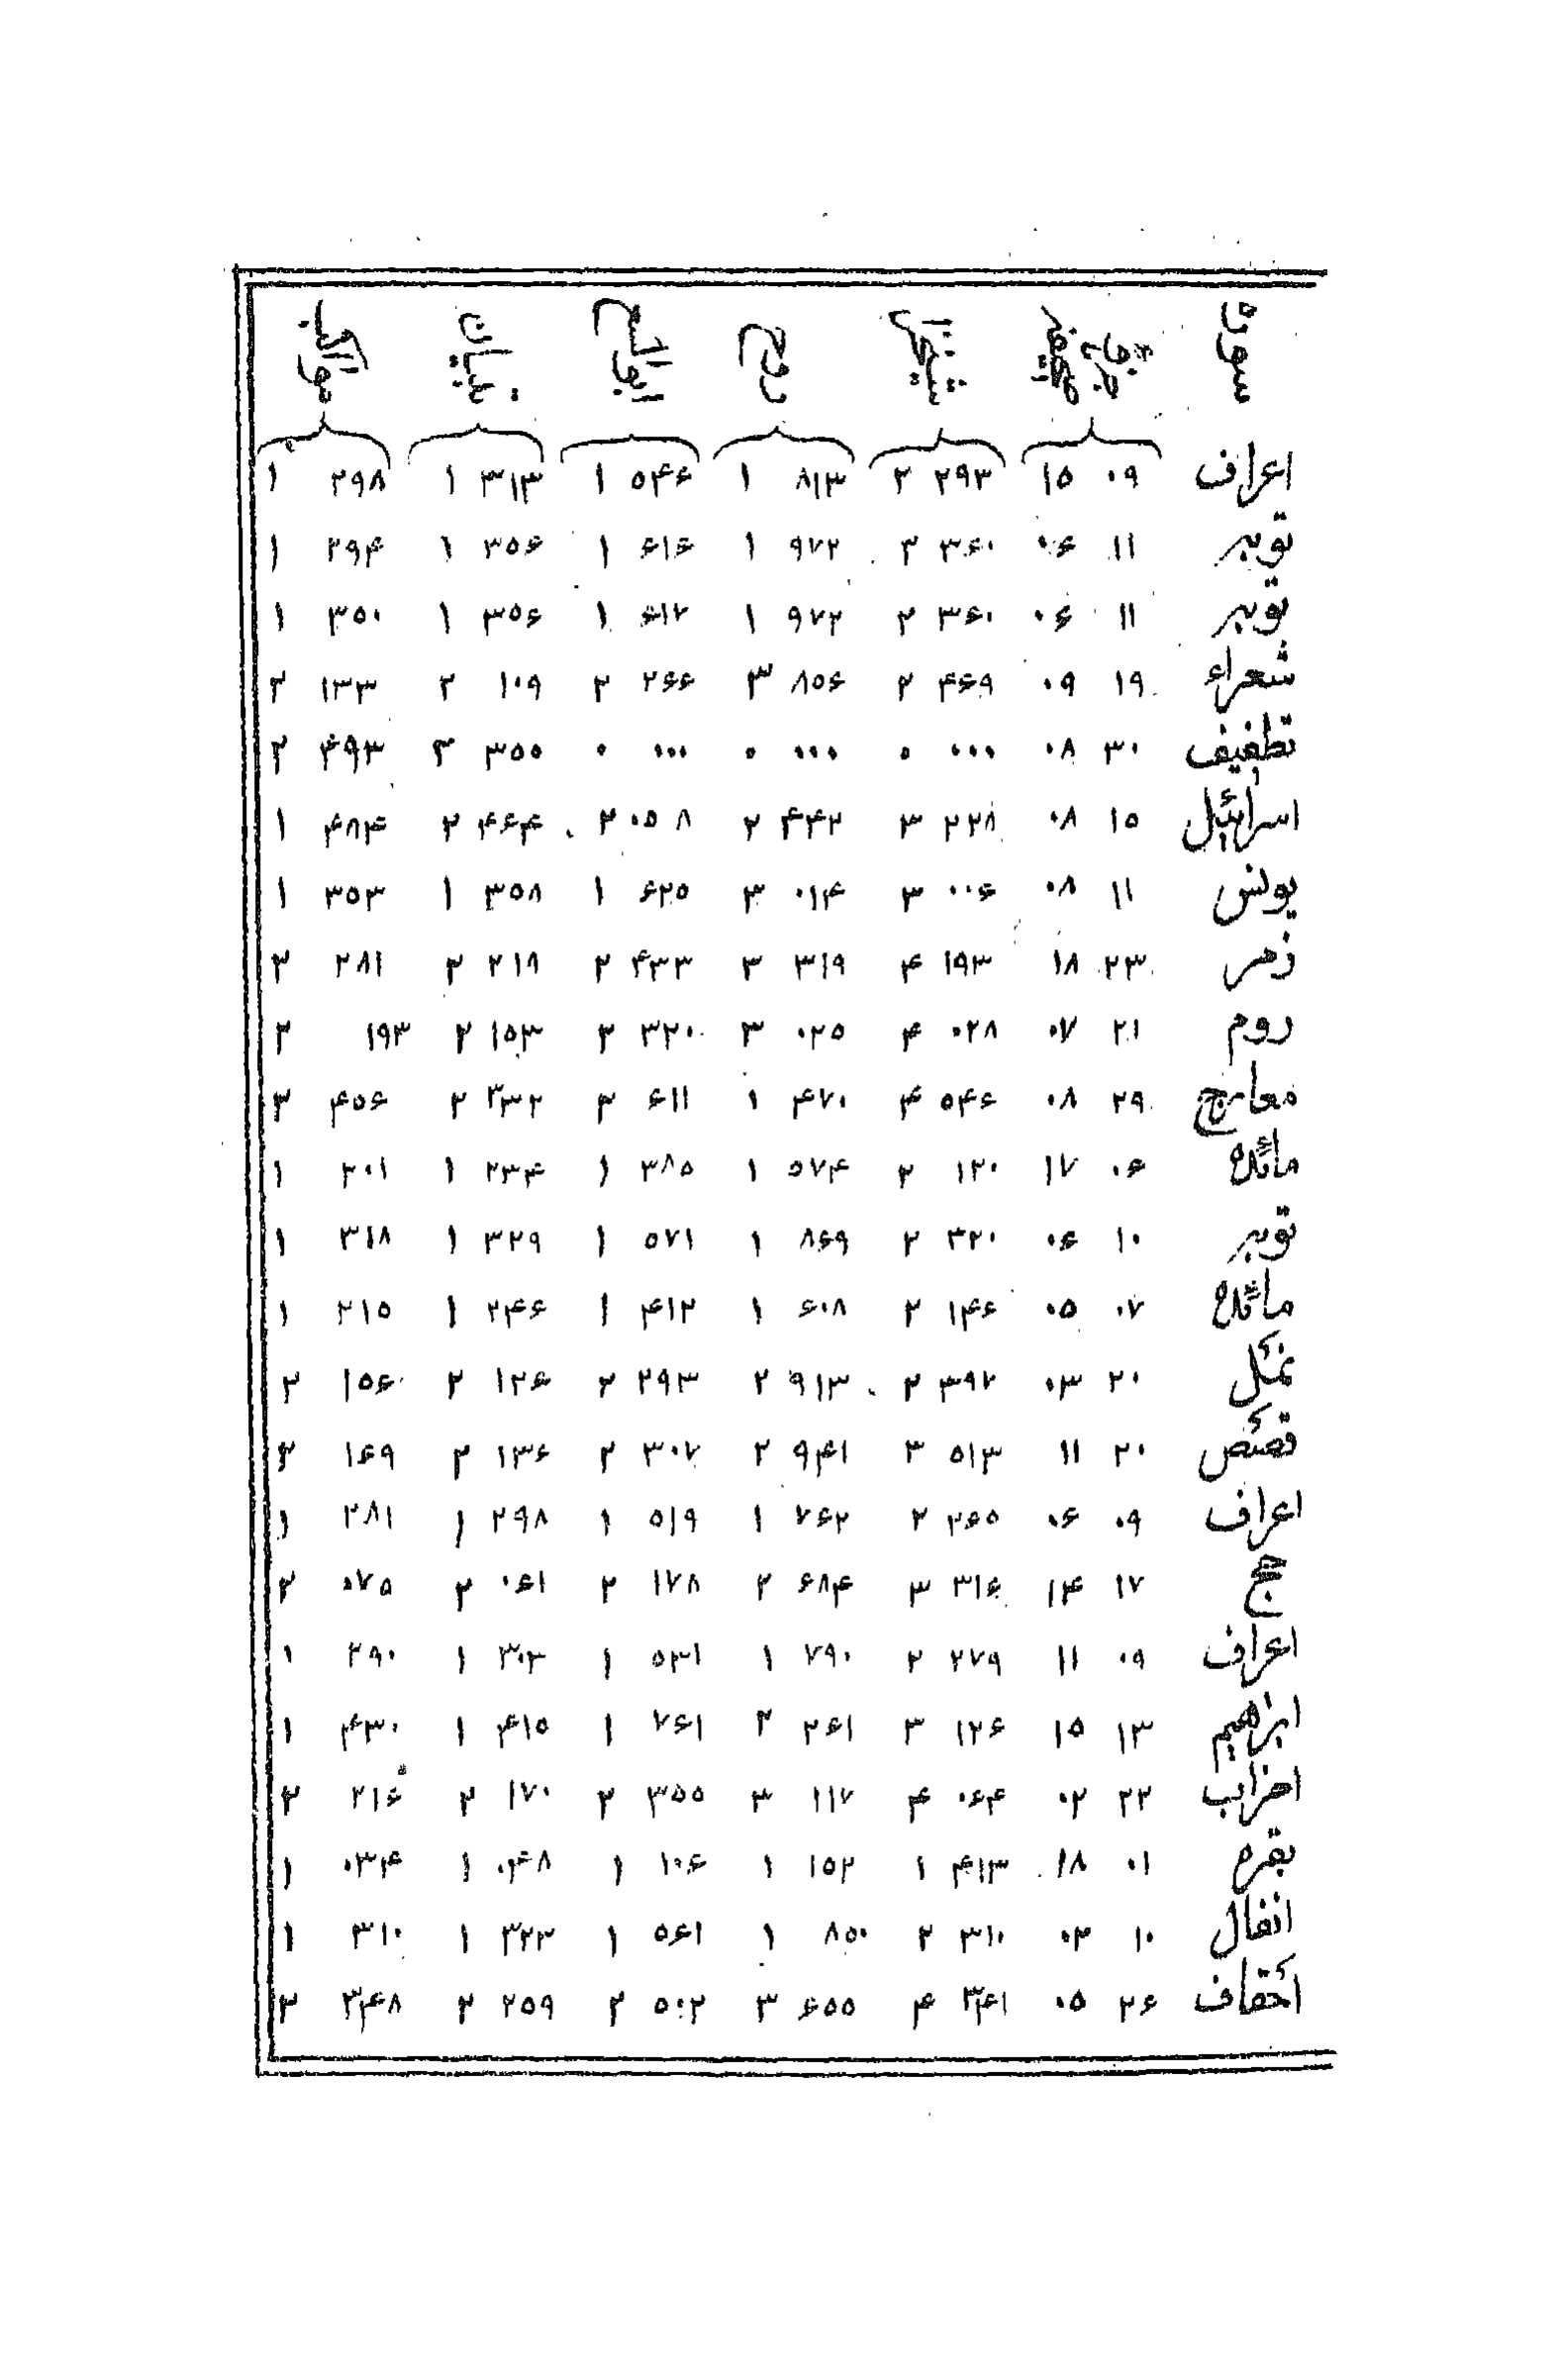 سوره جزء صفحه روح ابوالفتوح تبیان مواهب
اعراف ۰۹ ۱۵ ۲۹۳ ۲ ۸۱۳ ۱ ۵۴۶ ۱ ۳۱۳ ۱ ۲۹۸ ۱
توبه ۱۱ ۰۶ ۳۶۰ ۲ ۹۷۲ ۱ ۶۱۶ ۱ ۳۵۶ ۱ ۲۹۴ ۱
توبه ۱۱ ۰۶ ۳۶۰ ۲ ۹۷۲ ۱ ۶۱۷ ۱ ۳۵۶ ۱ ۳۵۰ ۱
شعراء ۱۹ ۰۹ ۴۶۹ ۲ ۸۵۶ ۳ ۲۶۶ ۲ ۱۰۹ ۲ ۱۳۳ ۲
تطفیف ۳۰ ۰۸ ۰۰۰ ۰ ۰۰۰ ۰ ۰۰۰ ۰ ۳۵۵ ۳ ۴۹۳ ۲
اسرائیل ۱۵ ۰۸ ۲۲۸ ۳ ۴۴۲ ۲ ۰۵۸ ۲ ۴۶۴ ۲ ۴۸۴ ۱
یونس ۱۱ ۰۸ ۰۰۶ ۳ ۰۱۴ ۳ ۶۲۵ ۱ ۳۵۸ ۱ ۳۵۳ ۱
زمر ۲۳ ۱۸ ۱۹۳ ۴ ۳۱۹ ۳ ۴۳۳ ۲ ۲۱۸ ۲ ۲۸۱ ۲
روم ۲۱ ۰۷ ۰۲۸ ۴ ۰۲۵ ۳ ۳۲۰ ۲ ۱۵۳ ۲ ۱۹۳ ۲
معارج ۲۹ ۰۸ ۵۴۶ ۴ ۴۷۰ ۱ ۶۱۱ ۲ ۳۳۲ ۲ ۴۵۶ ۲
مائده ۰۶ ۱۷ ۱۲۰ ۲ ۵۷۴ ۱ ۳۸۵ ۱ ۲۳۴ ۱ ۲۰۱ ۱
توبه ۱۰ ۰۶ ۳۲۰ ۲ ۸۶۹ ۱ ۵۷۱ ۱ ۳۲۹ ۱ ۳۱۸ ۱
مائده ۰۷ ۰۵ ۱۴۶ ۲ ۶۰۸ ۱ ۴۱۲ ۱ ۲۴۶ ۱ ۲۱۵ ۱
نمل ۲۰ ۰۳ ۳۹۷ ۲ ۹۱۳ ۲ ۲۹۳ ۲ ۱۲۶ ۲ ۱۵۶ ۲
قصص ۲۰ ۱۱ ۵۱۳ ۳ ۹۴۱ ۲ ۳۰۷ ۲ ۱۳۶ ۲ ۱۶۹ ۲
اعراف ۰۹ ۰۶ ۲۶۵ ۲ ۷۶۲ ۱ ۵۱۹ ۱ ۲۹۸ ۱ ۲۸۱ ۱
حج ۱۷ ۱۴ ۳۱۶ ۳ ۶۸۴ ۲ ۱۷۸ ۲ ۰۶۱ ۲ ۰۷۵ ۲
اعراف ۰۹ ۱۱ ۲۷۹ ۲ ۷۹۰ ۱ ۵۳۱ ۱ ۳۰۳ ۱ ۲۹۰ ۱
ابراهیم ۱۳ ۱۵ ۱۲۶ ۳ ۲۶۱ ۲ ۷۶۱ ۱ ۴۱۵ ۱ ۴۳۰ ۱
احزاب ۲۲ ۰۲ ۰۶۴ ۴ ۱۱۷ ۳ ۳۵۵ ۲ ۱۷۰ ۲ ۲۱۶ ۲
بقره ۰۱ ۱۸ ۴۱۳ ۱ ۱۵۲ ۱ ۱۰۶ ۱ ۰۴۸ ۱ ۰۳۴ ۱
انفال ۱۰ ۰۳ ۳۱۰ ۲ ۸۵۰ ۱ ۵۶۱ ۱ ۳۲۳ ۱ ۳۱۰ ۱
احقاف ۲۶ ۰۵ ۳۴۱ ۴ ۶۵۵ ۳ ۵۰۲ ۲ ۲۵۹ ۲ ۳۴۸ ۲